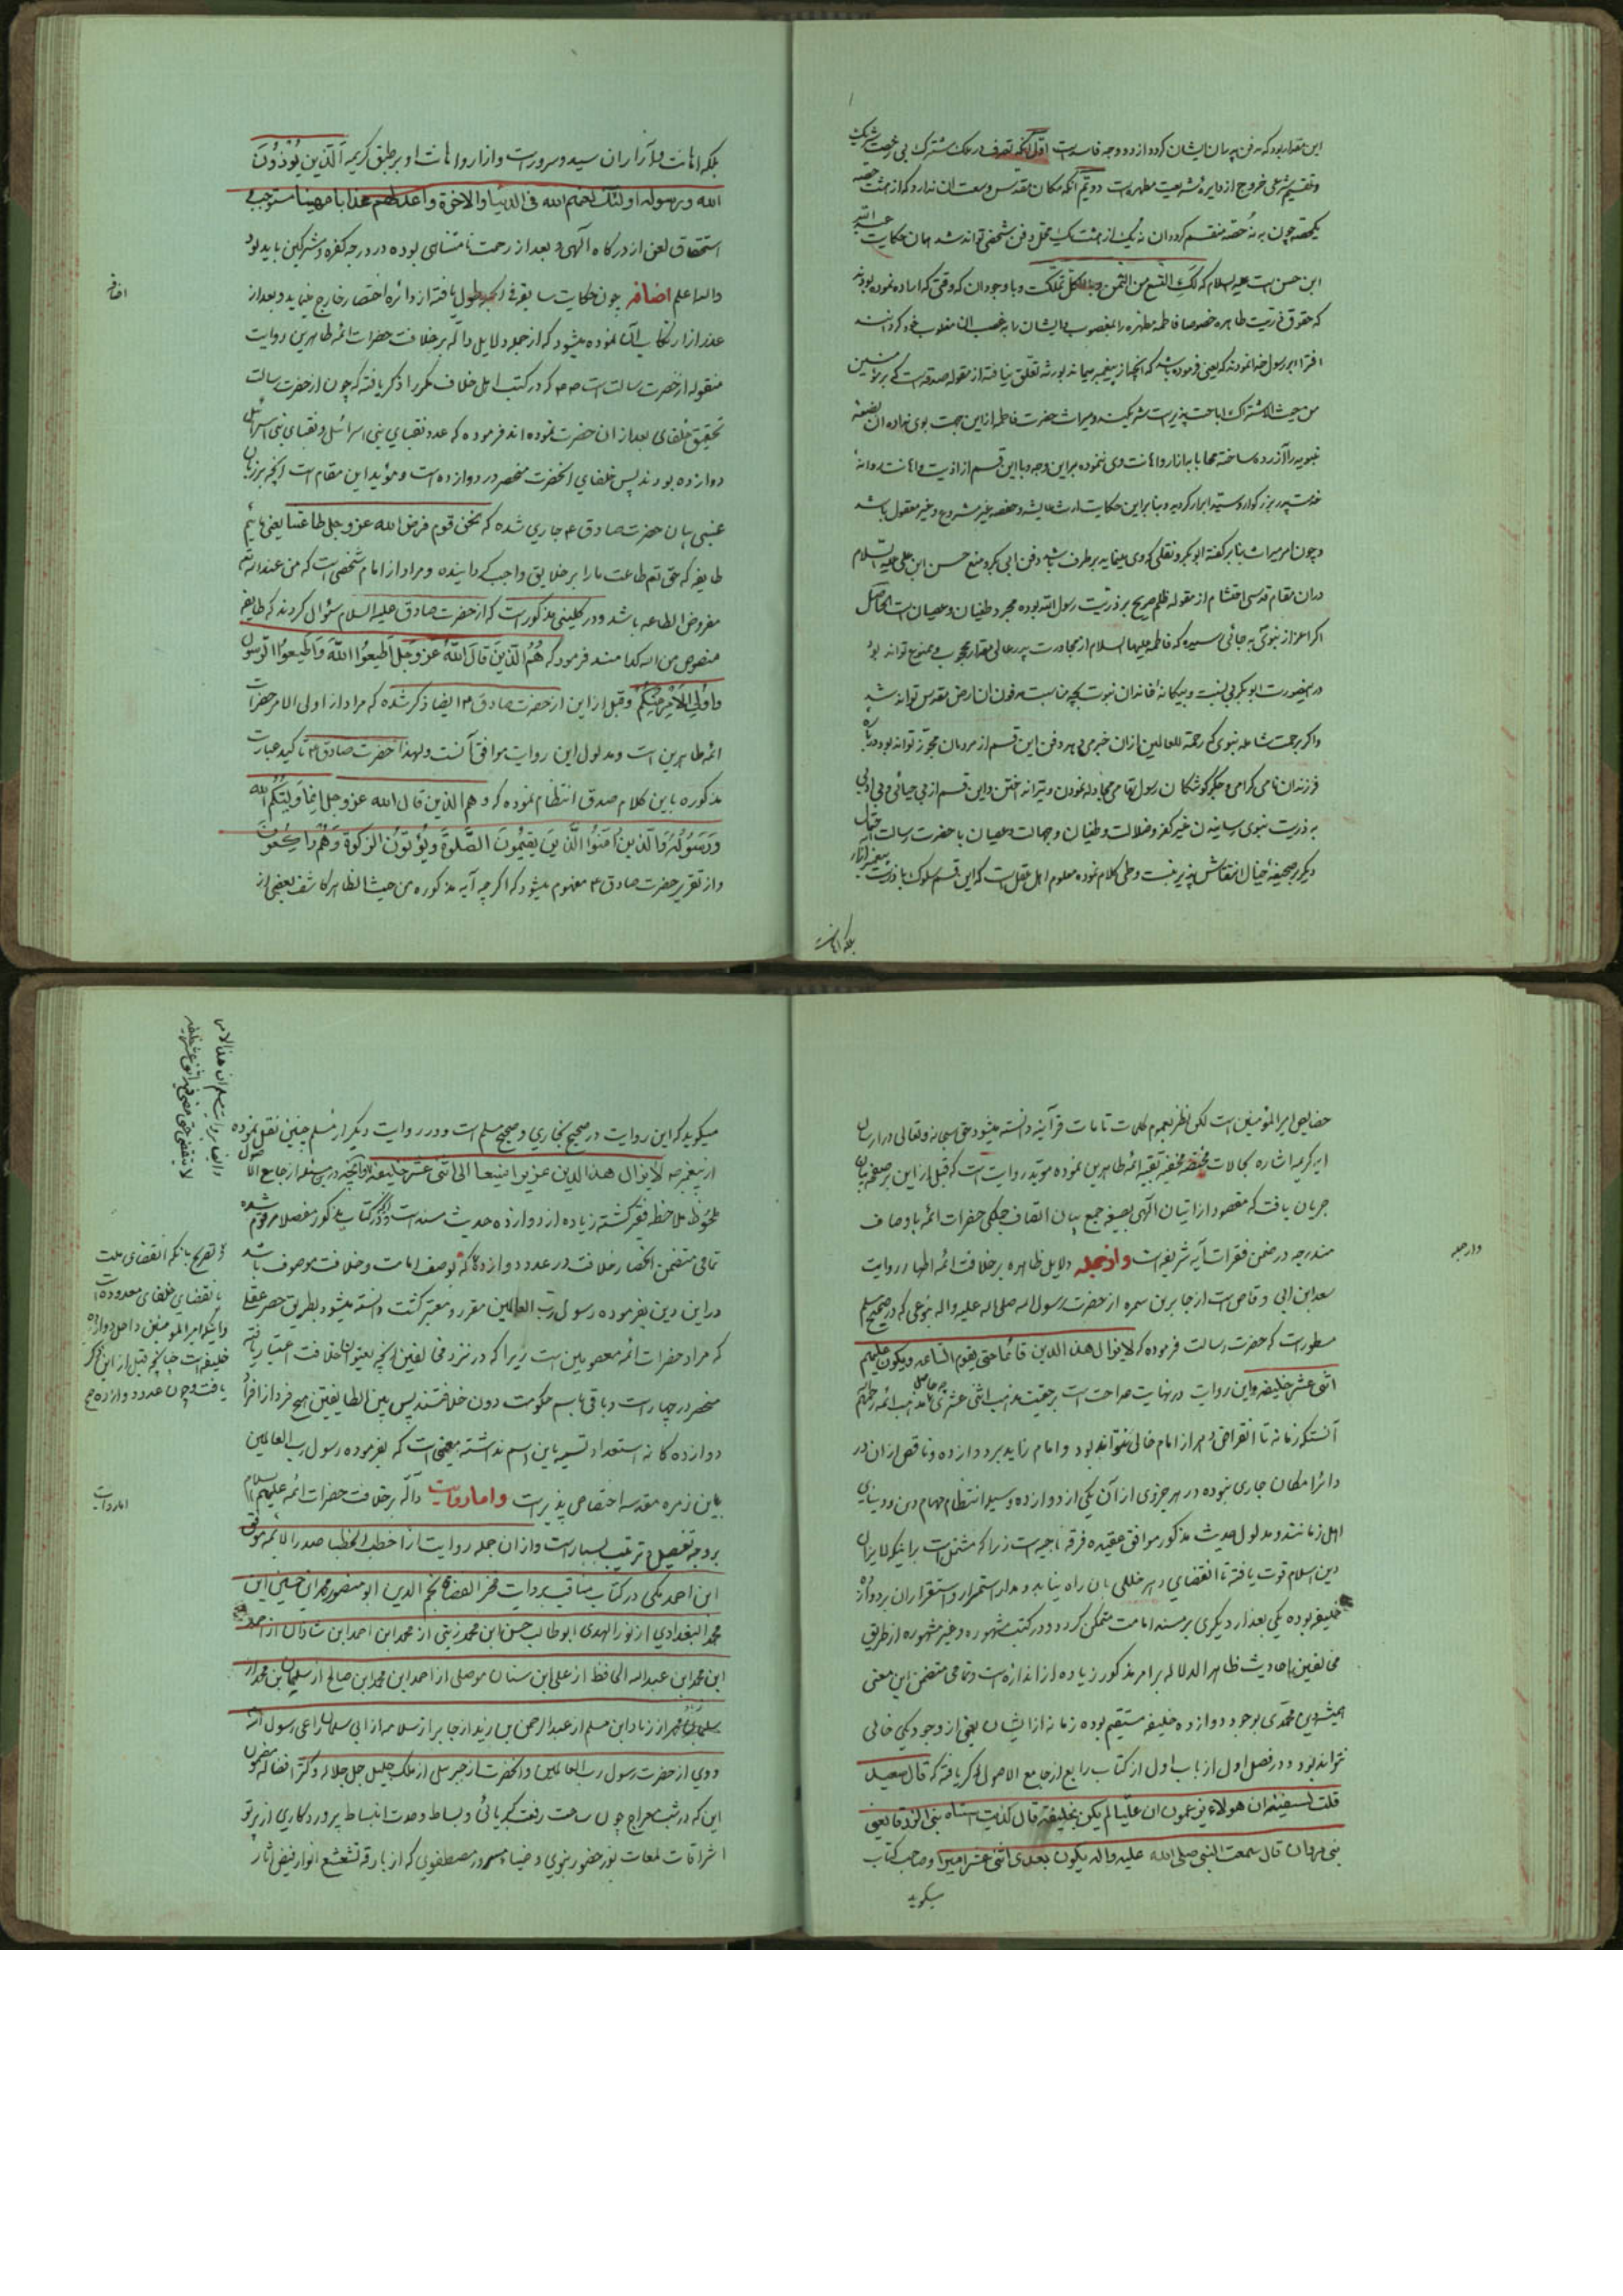 این مقدار بود که دفن پدران ایشان کرد و از دو وجه فاسد است اول آنکه تصرف در ملک مشترک بی رخصت شریک
و تقسیم شرعی خروج از دایره شریعت مطهر است دویم آنکه مکان مقدس وسعت آن ندارد که از هشت حصه
یکحصه چون به نه حصه منقسم گردد آن نه یک از هشت یک محل دفن شخصی تواند شد همان حکایت عبدالله
ابن حسن است علیه السلام که لک التسع من الثمن وبالکل تملکت و با وجود آن که وقتی که اراده نموده بودند
که حقوق ذریت طاهره خصوصا فاطمه مطهره را مغصوب
افترا بر رسول خدا نمودند که یعنی فرموده باشد که آنچه از پیغمبر بماند بورثه تعلق نیافته از مقوله صدقه است که بر مؤمنین
من حیث الاشتراک اباحت پذیر است شریکند و میراث حضرت فاطمه از این جهت بوی نداده آن بضعه
نبویه را آزرده ساخته محابا به آزار و اهانت وی ننموده بر این وجه و با این قسم از اذیت و اهانت روانه
خدمت پدر بزرگوار و سید ابرار گردید و بنابر این حکایت ارث عایشه و حفصه غیر مشروع و غیر معقول باشد
و چون امر میراث بنابر گفته ابوبکر و نقلی که وی مینماید بر طرف باشد دفن ابی بکر و منع حسن ابن علی علیه السلام
در آن مقام قدسی احتشام از مقوله ظلم صریح بر ذریت رسول الله بوده مجرد طغیان و عصیان است الحاصل
اگر اعزاز نبوی به جائی رسیده که فاطمه علیها السلام از مجاورت پدر عالی مقدار محجوب و ممنوع تواند بود
در اینصورت ابوبکر بی نسبت و بیگانه خاندان نبوت بچه مناسبت مدفون آن ارض مقدس تواند شد
و اگر رحمت شامله نبوی که رحمة للعالمین از آن خبر می دهد دفن این قسم از مردمان مجوز تواند بود درباره
فرزندان نامی گرامی و جگر گوشگان رسول تهامی مجادله نمودن و تیرانداختن و این قسم از بی حیائی و بی ادبی
به ذریت نبوی رسانیدن غیر کفر و ضلالت و طغیان و جهالت و عصیان با حضرت رسالت
دیگر بر صحیفه خیال انتقاش پذیر نیست و طی کلام نموده معلوم اهل عقل است که این قسم سلوک با ذریت پیغمبر آزار
بلکه اهانت
بلکه اهانت و آزار آن سید و سرور است و آزار و اهانت او بر طبق کریمه الذین یؤذون
الله ورسوله اولئک لعنهم الله فی الدنیا والاخرة واعد لهم عذابا مهینا مستوجب
استحقاق لعن از درگاه الهی و بعد از رحمت نامتناهی بوده در درجه کفره و مشرکین باید بود
والله اعلم اضافه چون حکایت سابقه فی الجمله طول یافته از دائره اختصار خارج مینماید و بعد از
اضافه
عذر از ارتکاب آن نموده میشود که از جمله دلایل داله بر خلافت حضرات ائمه طاهرین روایت
منقوله از حضرت رسالت است که در کتب اهل خلاف مکررا ذکر یافته که چون از حضرت رسالت
تحقیق خلفای بعد از آن حضرت نموده اند فرموده که عدد نقبای بنی اسرائیل و نقبای بنی اسرائیل
دوازده بودند پس خلفای آنحضرت منحصر در دوازده است و مؤید این مقام است آنچه بر زبان
بیان حضرت صادق ع جاری شده که نحن قوم فرض الله عز وجل طاعتنا یعنی مائیم
طایفه که حق تع طاعت ما را بر خلایق واجب گردانیده و مراد از امام شخصی است که من عند الله
مفروض الطاعه باشد و در کلینی مذکور است که از حضرت صادق علیه السلام سؤال کردند که طایفه
منصوص من الله کدامند فرمود که هم الذین قال الله عز وجل اطیعوا الله واطیعوا الرسول
واولی الامر منکم و قبل از این از حضرت صادق ع ایضا ذکر شده که مراد از اولی الامر حضرات
ائمه طاهرین است و مدلول این روایت موافق آنست و لهذا حضرت صادق ع تاکید عبارت
مذکوره باین کلام صدق انتظام نموده که وهم الذین قال الله عز وجل انما ولیکم الله
ورسوله والذین آمنوا الذین یقیمون الصلوة ویؤتون الزکوة وهم راکعون
و از تقریر حضرت صادق ع مفهوم میشود که اگر چه آیه مذکوره من حیث الظاهر کاشف بعضی از
خصایص امیر المؤمنین است لکن نظر بعموم کلمات تامات قرآنیه دانسته میشود حق سبحانه و تعالی در ارسال
این کریمه اشاره بکمالات مختصه بقیه ائمه طاهرین نموده مؤید روایت است که قبل از این بر صفحه بیان
جریان یافت که مقصود از اتیان الهی بصیغه جمع بیان اتصاف جملگی حضرات ائمه باوصاف
مندرجه در ضمن فقرات آیه شریفه است و از جمله دلایل ظاهره بر خلافت ائمه اطهار روایت
و از جمله
سعد ابن ابی وقاص است از جابر بن سمره از حضرت رسول الله صلی الله علیه واله بنوعی که در صحیح مسلم
مسطور است که حضرت رسالت فرموده که لا یزال هذا الدین قائما حتی یقوم الساعه ویکون علیهم
اثنی عشر خلیفه و این روایت در نهایت صراحت است بر حقیت مذهب اثنی عشری چه حاصل مذهب ائمه
آنست که زمانه تا انقراض دهر از امام خالی نتواند بود و امام زاید بر دوازده و ناقص از آن در
دائره امکان جاری نبوده در هر جزوی از آن یکی از دوازده وسیله انتظام مهام دین و دنیای
اهل زمانند و مدلول حدیث مذکور موافق عقیده فرقه ناجیه است زیرا که مشتمل است بر اینکه لا یزال
دین اسلام قوت یافته تا انقضای دهر خللی بآن راه نیابد و مدار استمرار و استقرار آن بر دوازده
خلیفه بوده یکی بعد از دیگری بر مسند امامت متمکن گردد و در کتب مشهوره و غیر مشهوره از طریق
مخالفین احادیث ظاهر الدلاله بر امر مذکور زیاده از اندازه است و تمامی متضمن این معنی
همیشه دین محمدی بوجود دوازده خلیفه مستقیم بوده زمانه از ایشان یعنی از وجود یکی خالی
نتواند بود و در فصل اول از باب اول از کتاب رابع از جامع الاصول ذکر یافته که قال سعید
قلت لسفینه ان هولاء یزعمون ان علیا لم یکن بخلیفة قال کذبت استاه بنی الزرقا یعنی
بنی مروان قال سمعت النبی صلی الله علیه واله یکون بعدی اثنی عشر امیرا و صاحب کتاب
میگوید
میگوید که این روایت در صحیح بخاری و صحیح مسلم است و در روایت دیگر از مسلم چنین نقل نموده
از پیغمبر ص لا یزال هذا الدین عزیزا منیعا الی اثنی عشر خلیفة و آنچه در این مسئله از جامع الاصول
ملحوظ ملاحظه فقیر گشته زیاده از دوازده حدیث مسند است که در کتاب مذکور مفصلا مرقوم شده
تمامی متضمن انحصار خلافت در عدد دوازده که بوصف امامت و خلافت موصوف باشد
در این دین بفرموده رسول رب العالمین مقرر و معتبر گشت دانسته میشود بطریق حصر عقلی
که مراد حضرات ائمه معصومین است زیرا که در نزد مخالفین آنچه بعنوان خلافت اعتبار یافته
منحصر در چهار است و باقی باسم حکومت دون خلافتند پس بین الطایفتین هیچ فرد از افراد
دوازده گانه استعداد تسمیه باین اسم نداشته معین است که بفرموده رسول رب العالمین
باین زمره مقدسه اختصاص پذیر است و اما روایات داله بر خلافت حضرات ائمه علیهم السلام
اما روایات
بر وجه تفصیل و ترتیب بسیار است و از آن جمله روایت از اخطب الخطبا صدر الائمه موفق
ابن احمد مکی در کتاب مناقب بروایت فخر القضاة نجم الدین ابو منصور محمد ابن حسین ابن
محمد البغدادی از نور الهدی ابو طالب حسن ابن محمد زینبی از محمد ابن احمد ابن شاذان از احمد
ابن محمد ابن عبد الله الحافظ از علی ابن سنان موصلی از احمد ابن محمد ابن صالح از سلیمان بن محمد از
از زیاد ابن مسلم از عبد الرحمن بن یزید از جابر از سلامه از ابی سلمان راعی رسول الله
و وی از حضرت رسول رب العالمین و آنحضرت از جبرئیل از ملک جلیل جل جلاله و کثر افضاله مضمون
این که در شب معراج چون ساحت رفعت کبریائی و بساط وحدت انبساط پروردگاری از پرتو
اشراقات لمعات نور حضور نبوی و ضیاء مصطفوی که از بارقه تشعشع انوار فیض آثار
و ایضا بروایت مسلم ان هذا الامر
لا ینقضی حتی یمضی فیهم اثنی عشر خلیفه
و تصریح بآنکه انقضای ملت
بانقضای خلفای معدوده است
و اینکه امیر المؤمنین داخل دوازده
خلیفه است چنانچه قبل از این ذکر
یافت و چون عدد دوازده